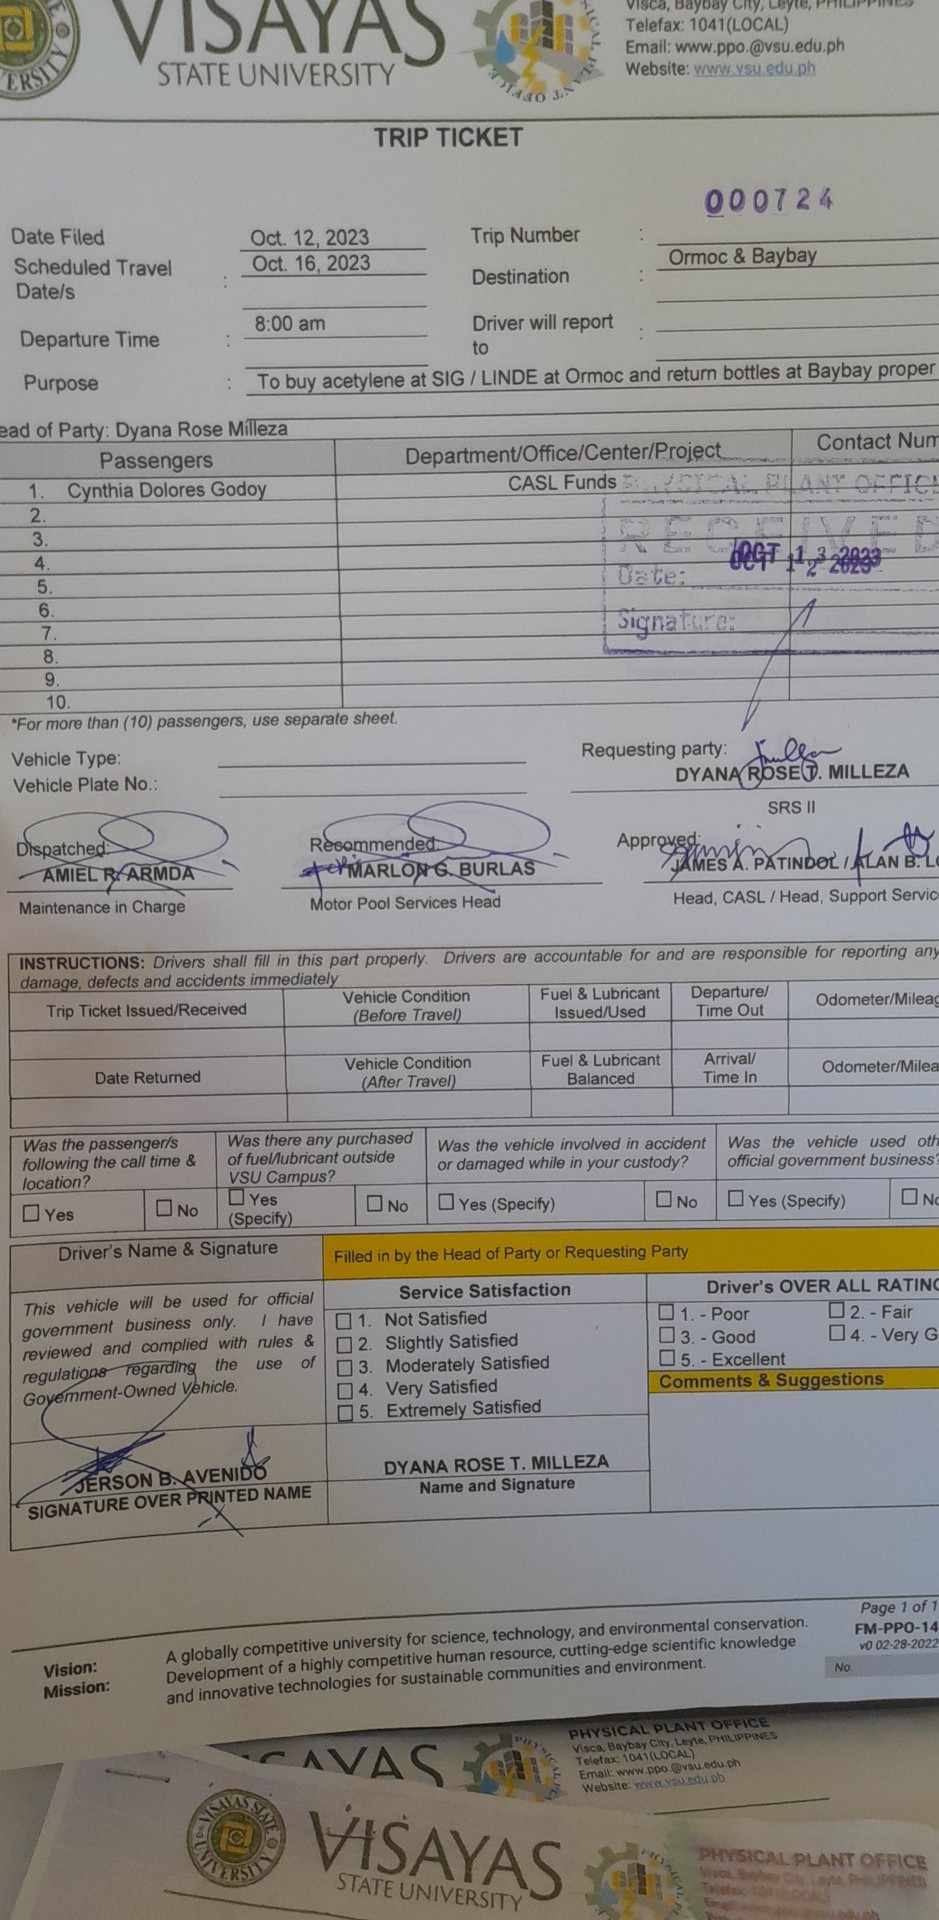 VISAYAS
STATE UNIVERSITY
UNIVERSITY
Visca, Baybay City, Leyte, PHILIPPINES
Telefax: 1041(LOCAL)
Email: www.ppo.@vsu.edu.ph
Website: www.vsu.edu.ph
TRIP TICKET
000724
Date Filed Oct. 12, 2023 Trip Number :
Scheduled Travel Date/s : Oct. 16, 2023 Destination : Ormoc & Baybay
Departure Time : 8:00 am Driver will report to :
Purpose : To buy acetylene at SIG / LINDE at Ormoc and return bottles at Baybay proper
ead of Party: Dyana Rose Milleza
Passengers Department/Office/Center/Project Contact Num
1. Cynthia Dolores Godoy CASL Funds
2.
3.
4.
5.
6.
7.
8.
9.
10.
PHYSICAL PLANT OFFICE
RECEIVED
Date:
Signature:
*For more than (10) passengers, use separate sheet.
Vehicle Type:
Vehicle Plate No.:
Requesting party:
DYANA ROSE T. MILLEZA
SRS II
Dispatched: Recommended: Approved:
AMIEL R. ARMDA MARLON G. BURLAS JAMES A. PATINDOL / ALAN B. LO
Maintenance in Charge Motor Pool Services Head Head, CASL / Head, Support Servic
INSTRUCTIONS: Drivers shall fill in this part properly. Drivers are accountable for and are responsible for reporting any
damage, defects and accidents immediately
Trip Ticket Issued/Received Vehicle Condition (Before Travel) Fuel & Lubricant Issued/Used Departure/ Time Out Odometer/Mileag
Date Returned Vehicle Condition (After Travel) Fuel & Lubricant Balanced Arrival/ Time In Odometer/Milea
Was the passenger/s following the call time & location?
Yes No
Was there any purchased of fuel/lubricant outside VSU Campus?
Yes (Specify) No
Was the vehicle involved in accident or damaged while in your custody?
Yes (Specify) No
Was the vehicle used oth official government business?
Yes (Specify) No
Driver's Name & Signature
Filled in by the Head of Party or Requesting Party
This vehicle will be used for official
government business only. I have
reviewed and complied with rules &
regulations regarding the use of
Government-Owned Vehicle.
JERSON B. AVENIDO
SIGNATURE OVER PRINTED NAME
Service Satisfaction
1. Not Satisfied
2. Slightly Satisfied
3. Moderately Satisfied
4. Very Satisfied
5. Extremely Satisfied
DYANA ROSE T. MILLEZA
Name and Signature
Driver's OVER ALL RATING
1. - Poor 2. - Fair
3. - Good 4. - Very G
5. - Excellent
Comments & Suggestions
Page 1 of 1
FM-PPO-14
v0 02-28-2022
No.
Vision: A globally competitive university for science, technology, and environmental conservation.
Mission: Development of a highly competitive human resource, cutting-edge scientific knowledge
and innovative technologies for sustainable communities and environment.
PHYSICAL PLANT OFFICE
Visca, Baybay City, Leyte, PHILIPPINES
Telefax: 1041(LOCAL)
Email: www.ppo.@vsu.edu.ph
Website: www.vsu.edu.ph
VISAYAS STATE
VISAYAS
STATE UNIVERSITY
PHYSICAL PLANT OFFICE